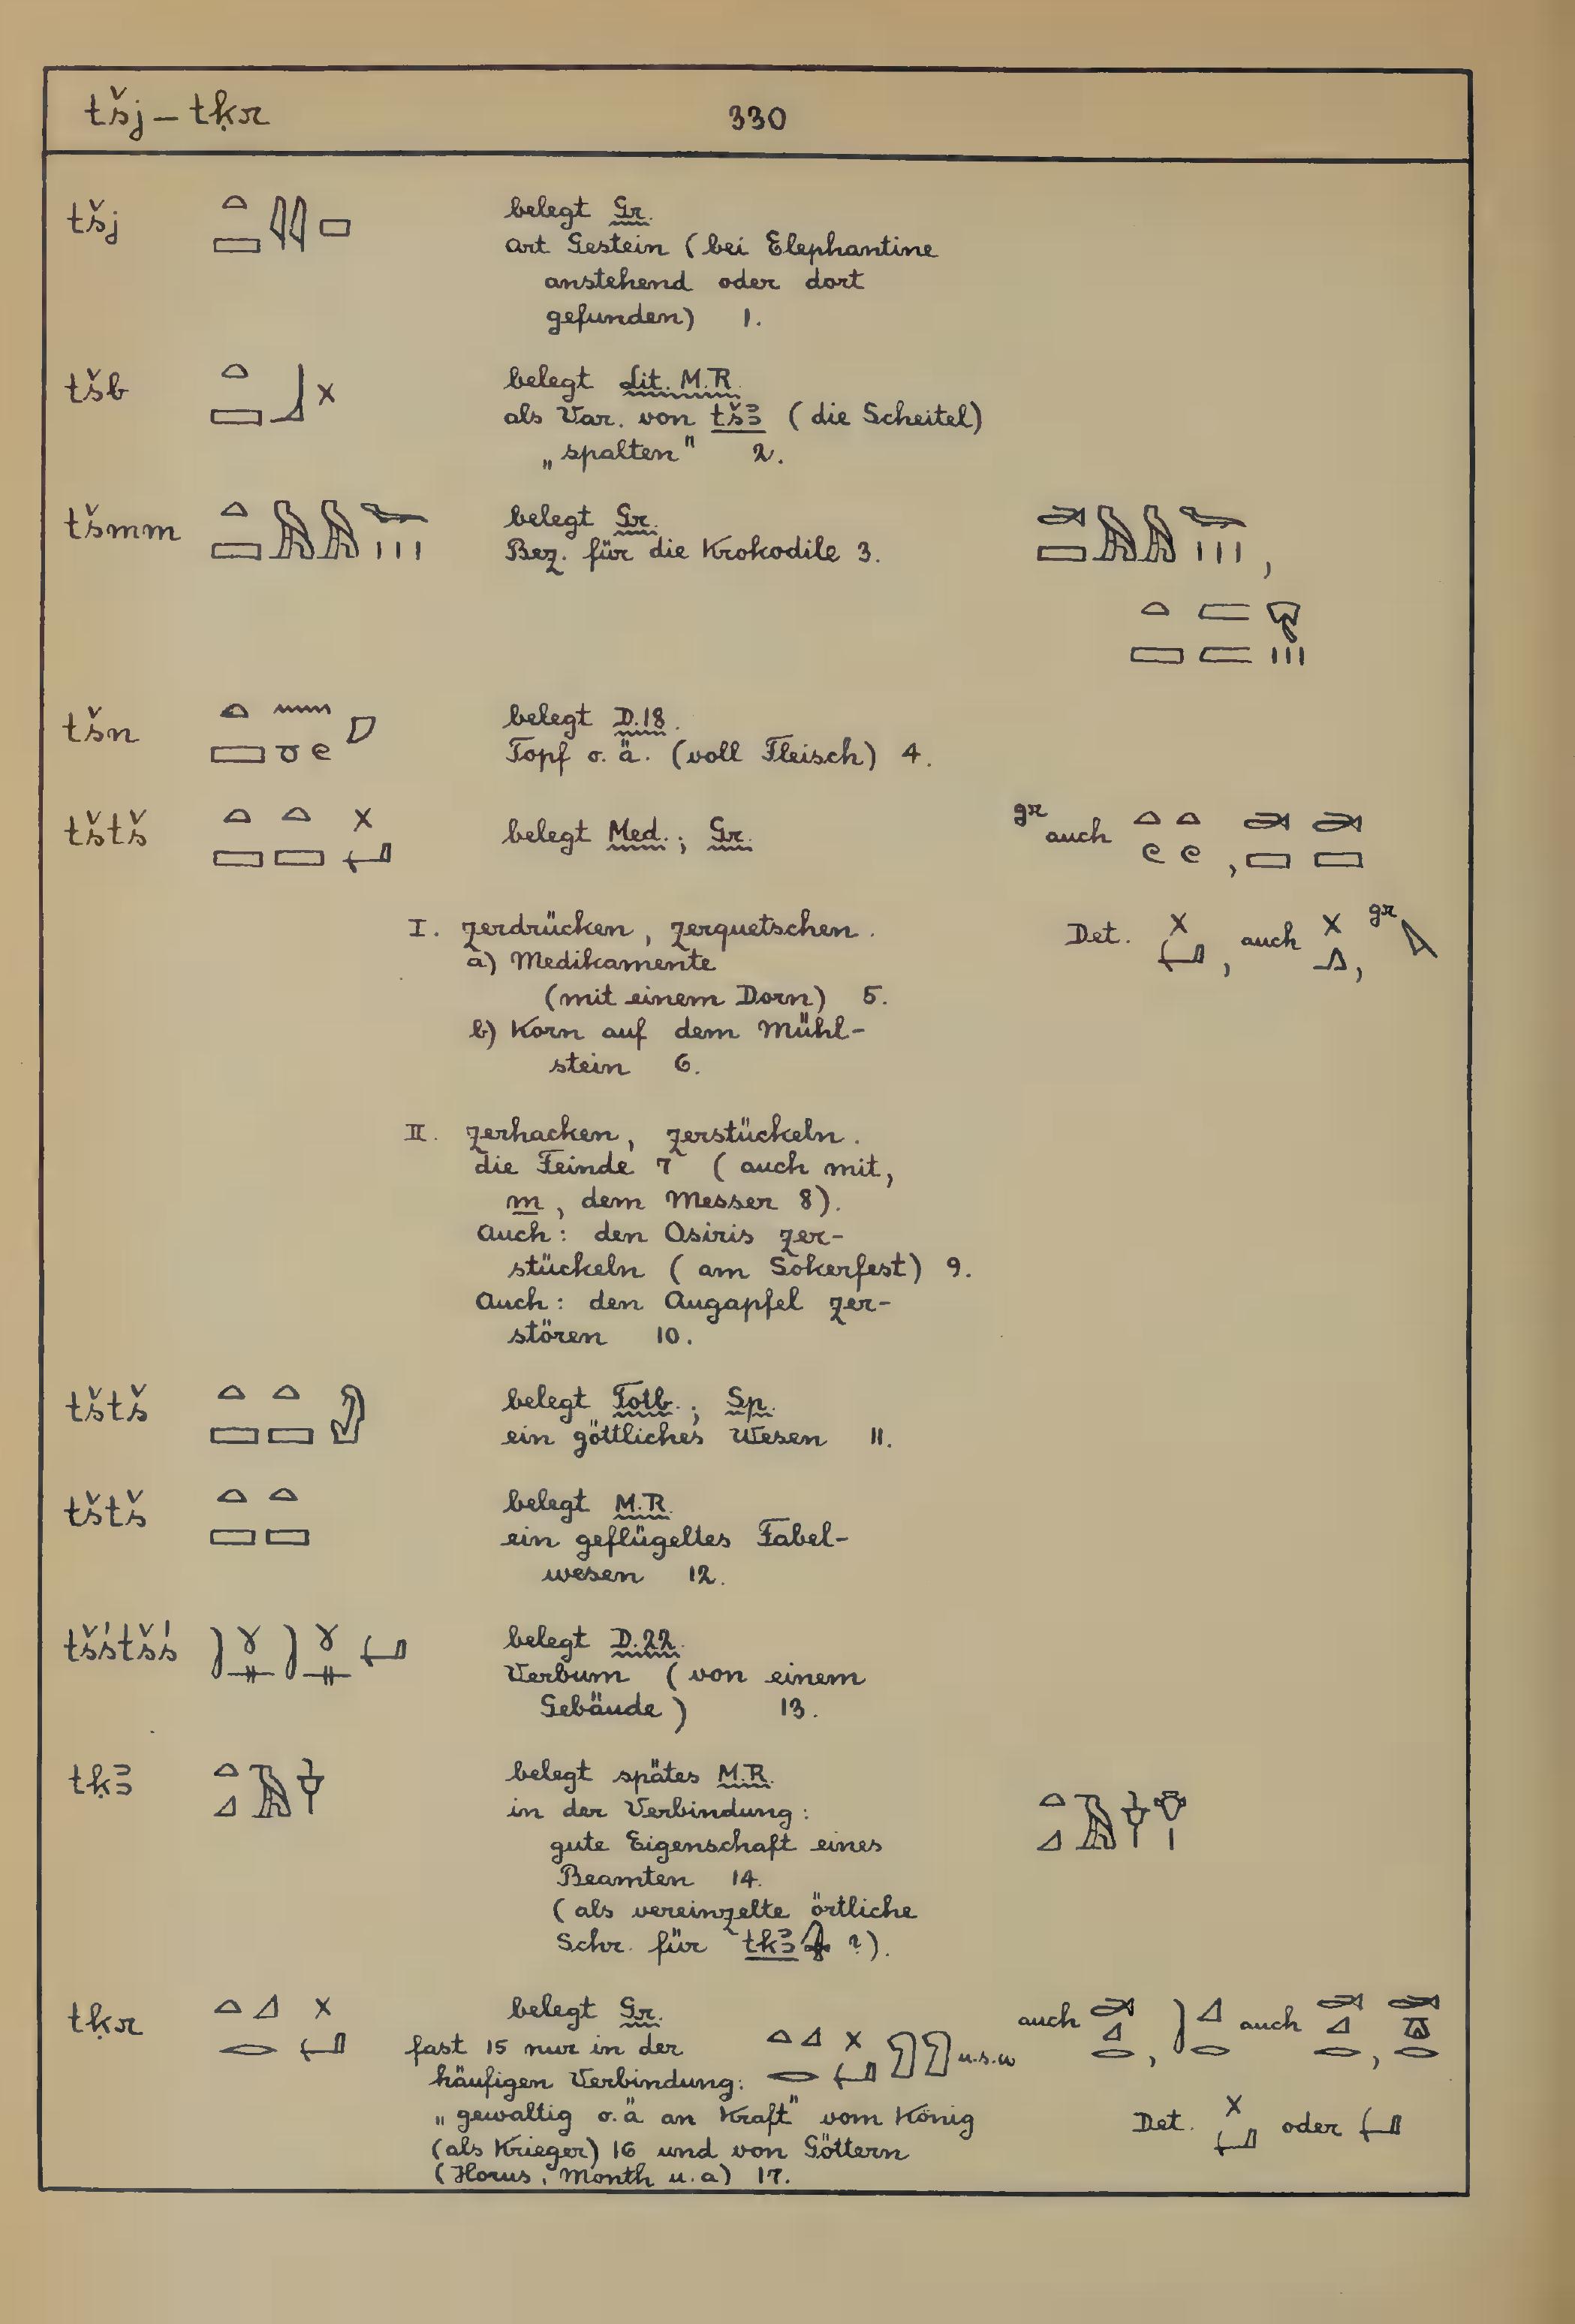 tšj – tḳr 330
tšj belegt Gr.
Art Gestein (bei Elephantine
anstehend oder dort
gefunden) 1.
tšb belegt Lit. M.R.
als Var. von tšꜣ (die Scheitel)
„spalten" 2.
tšmm belegt Gr.
Bez. für die Krokodile 3.
tšn belegt D.18.
Topf o. ä. (voll Fleisch) 4.
tštš belegt Med.; Gr. gr auch
I. zerdrücken, zerquetschen. Det. , auch , gr
a) Medikamente
(mit einem Dorn) 5.
b) Korn auf dem Mühl-
stein 6.
II. zerhacken, zerstückeln.
die Feinde 7 (auch mit,
m, dem Messer 8).
Auch: den Osiris zer-
stückeln (am Sokerfest) 9.
Auch: den Augapfel zer-
stören 10.
tštš belegt Totb.; Sp.
ein göttliches Wesen 11.
tštš belegt M.R.
ein geflügeltes Fabel-
wesen 12.
tšśtšś belegt D.22.
Verbum (von einem
Gebäude) 13.
tḳꜣ belegt spätes M.R.
in der Verbindung:
gute Eigenschaft eines
Beamten 14.
(als vereinzelte örtliche
Schr. für tkꜣ ?).
tḳr belegt Gr. auch , auch ,
fast 15 nur in der u.s.w
häufigen Verbindung:
„gewaltig o.ä an Kraft" vom König Det. oder
(als Krieger) 16 und von Göttern
(Horus, Month u.a) 17.